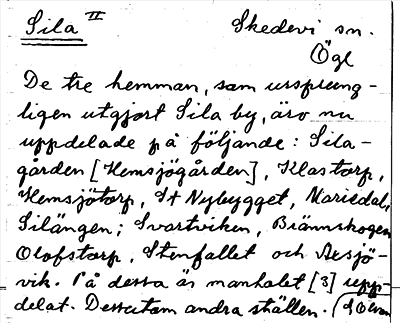 Sila II Skedevi sn.
Ögl
De tre hemman, som ursprung-
ligen utgjort Sila by, äro nu
uppdelade på följande: Sila-
gården [Hemsjögården], Klastorp,
Hemsjötorp, St Nybygget, Mariedal,
Silängen; Svartviken, Brännskogen
Olofstorp, Stenfallet och Axsjö-
vik. På dessa är manhalet [3] upp
delat. Dessutom andra ställen.